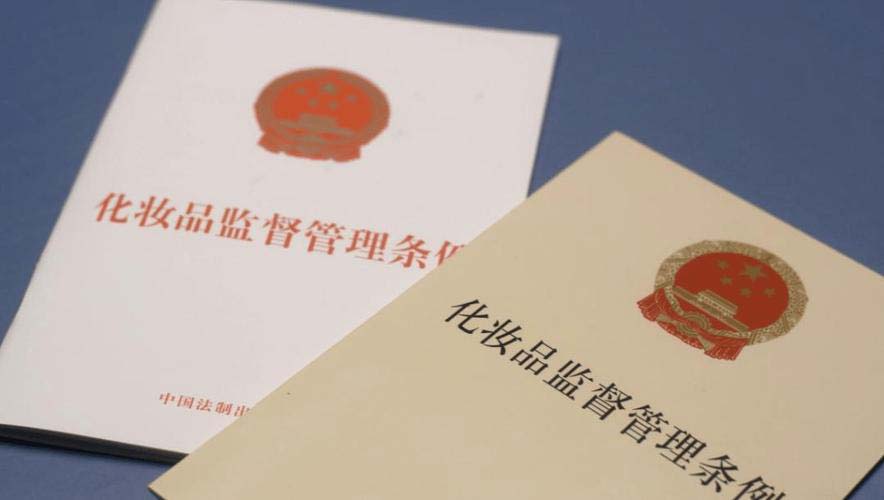 化妆品监督管理条例
中国法制出
化妆品监督管理条例